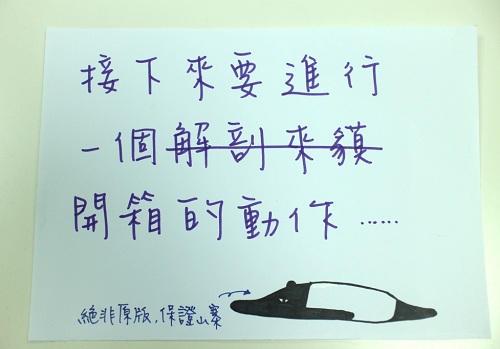 接下來要進行
一個解剖來貘
開箱的動作……
絕非原版，保證山寨